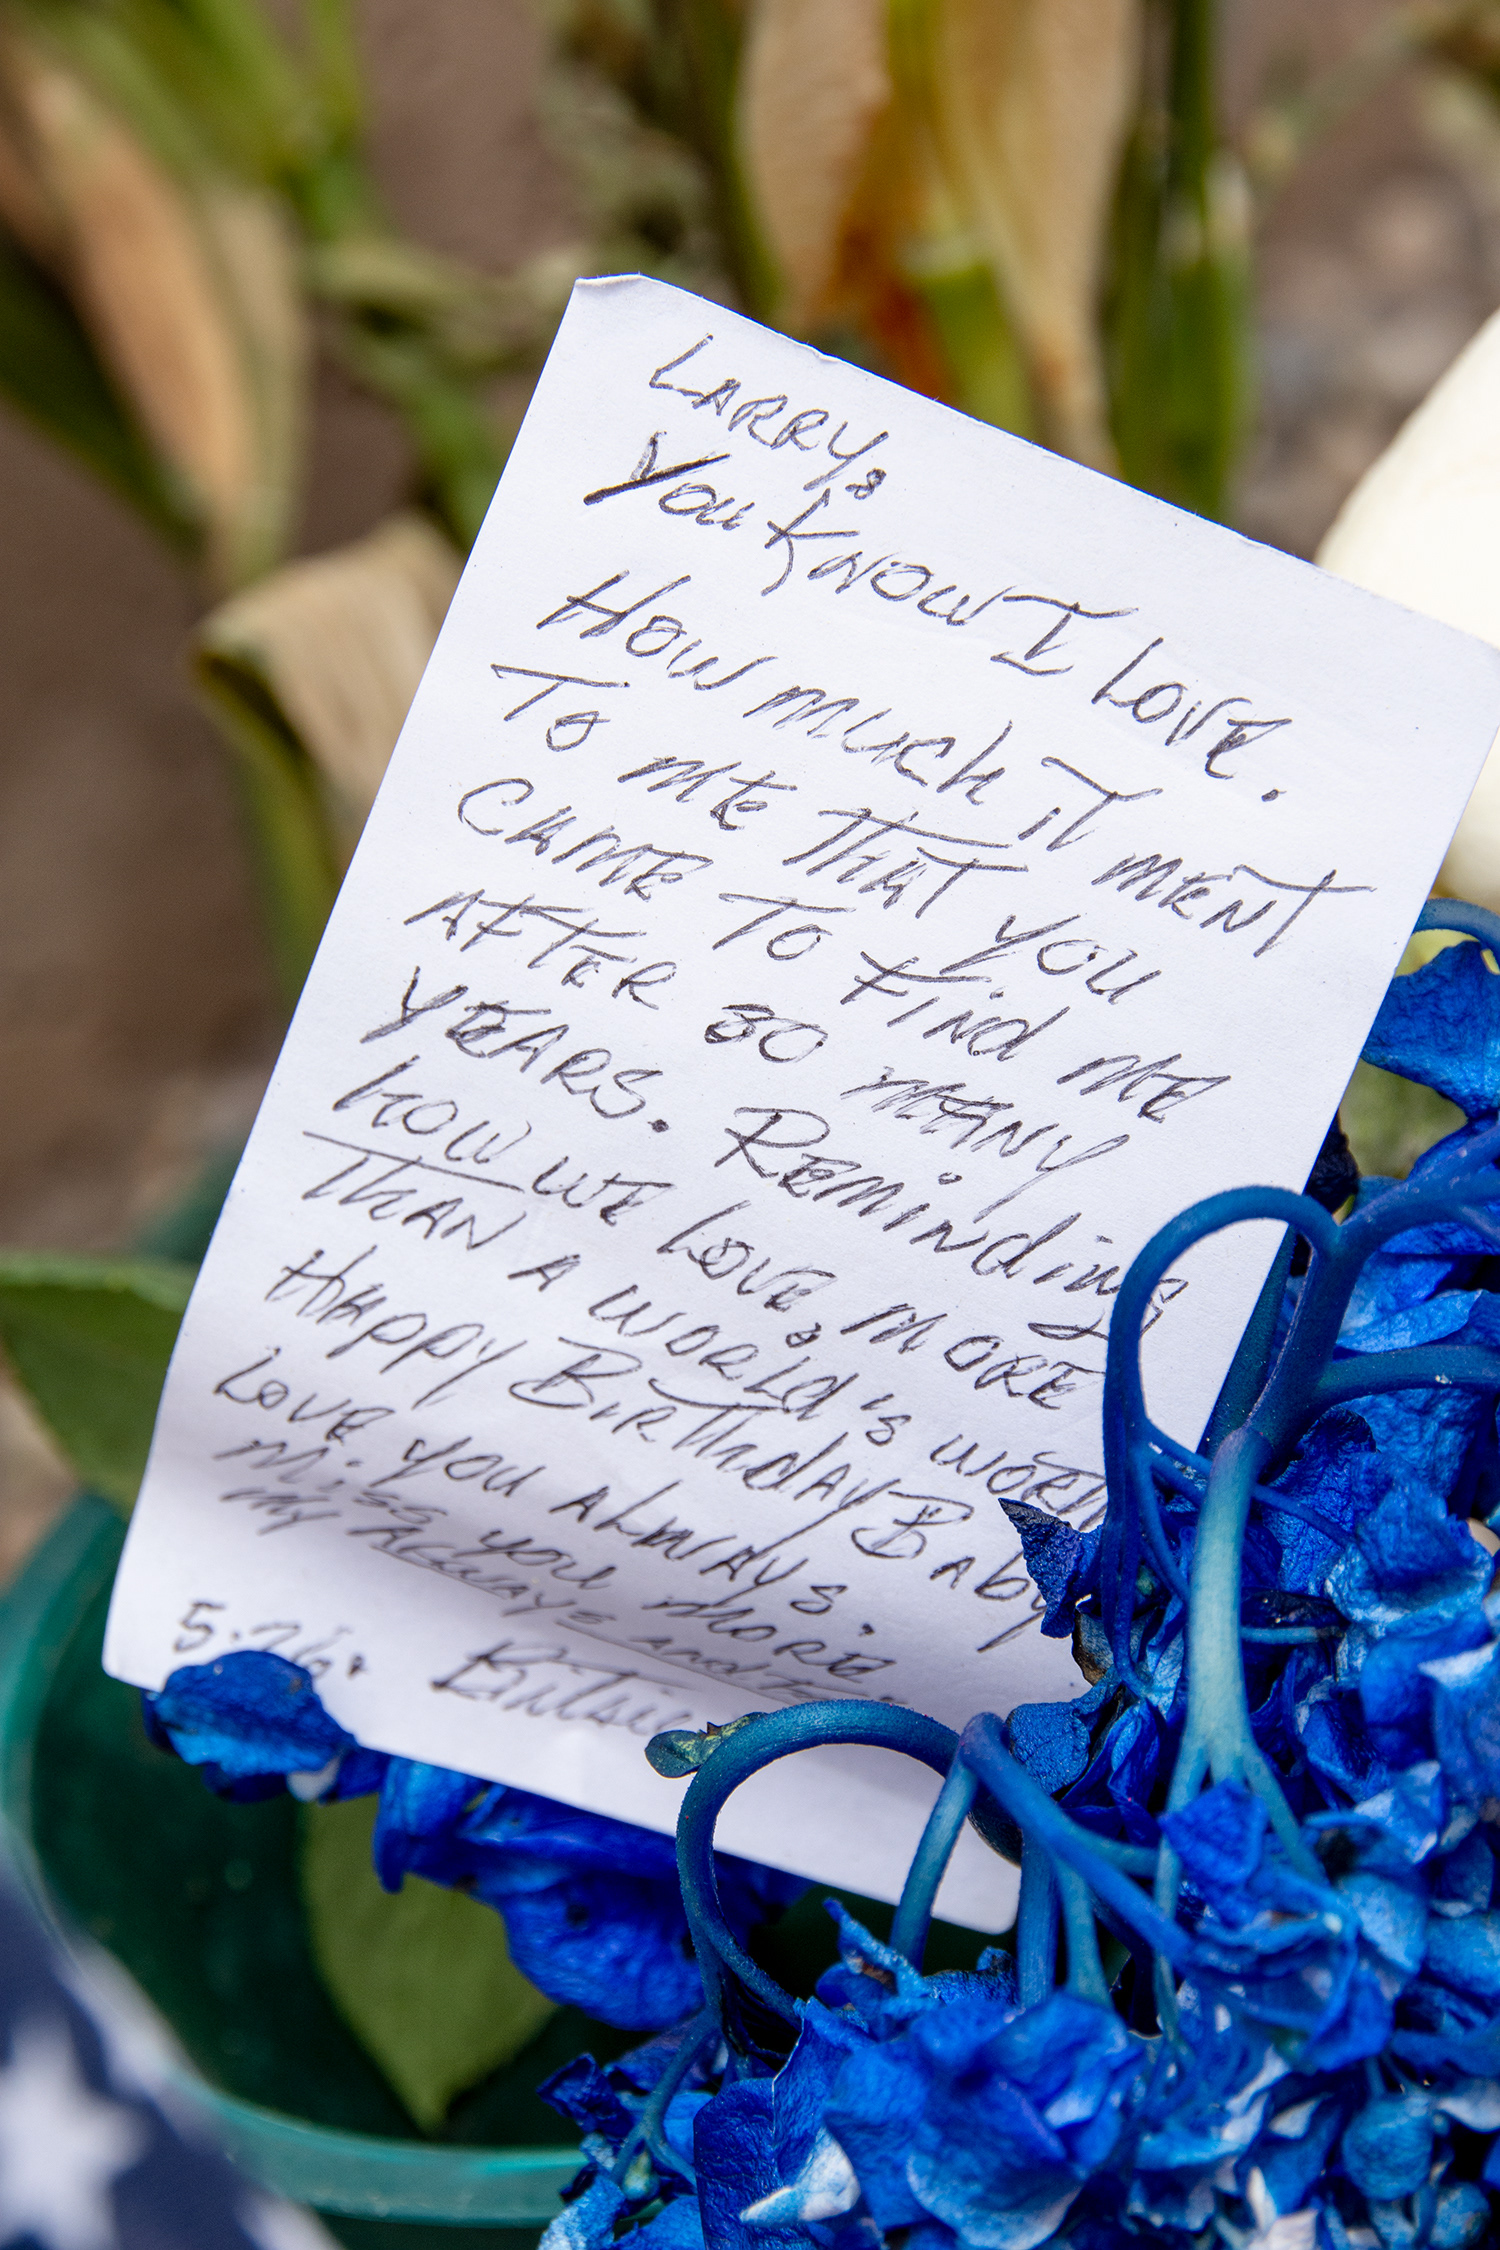 LARRY,
You KNOW I LOVE.
HOW MUCH IT MENT
TO ME THAT YOU
CAME TO FIND ME
AFTER SO MANY
YEARS. REMINDING
HOW WE LOVE, MORE
THAN A WORLD'S WORTH
HAPPY BIRTHDAY BAby
LOVE YOU ALWAYS.
Miss you MORE.
MY ALWAYS AND
5.26.